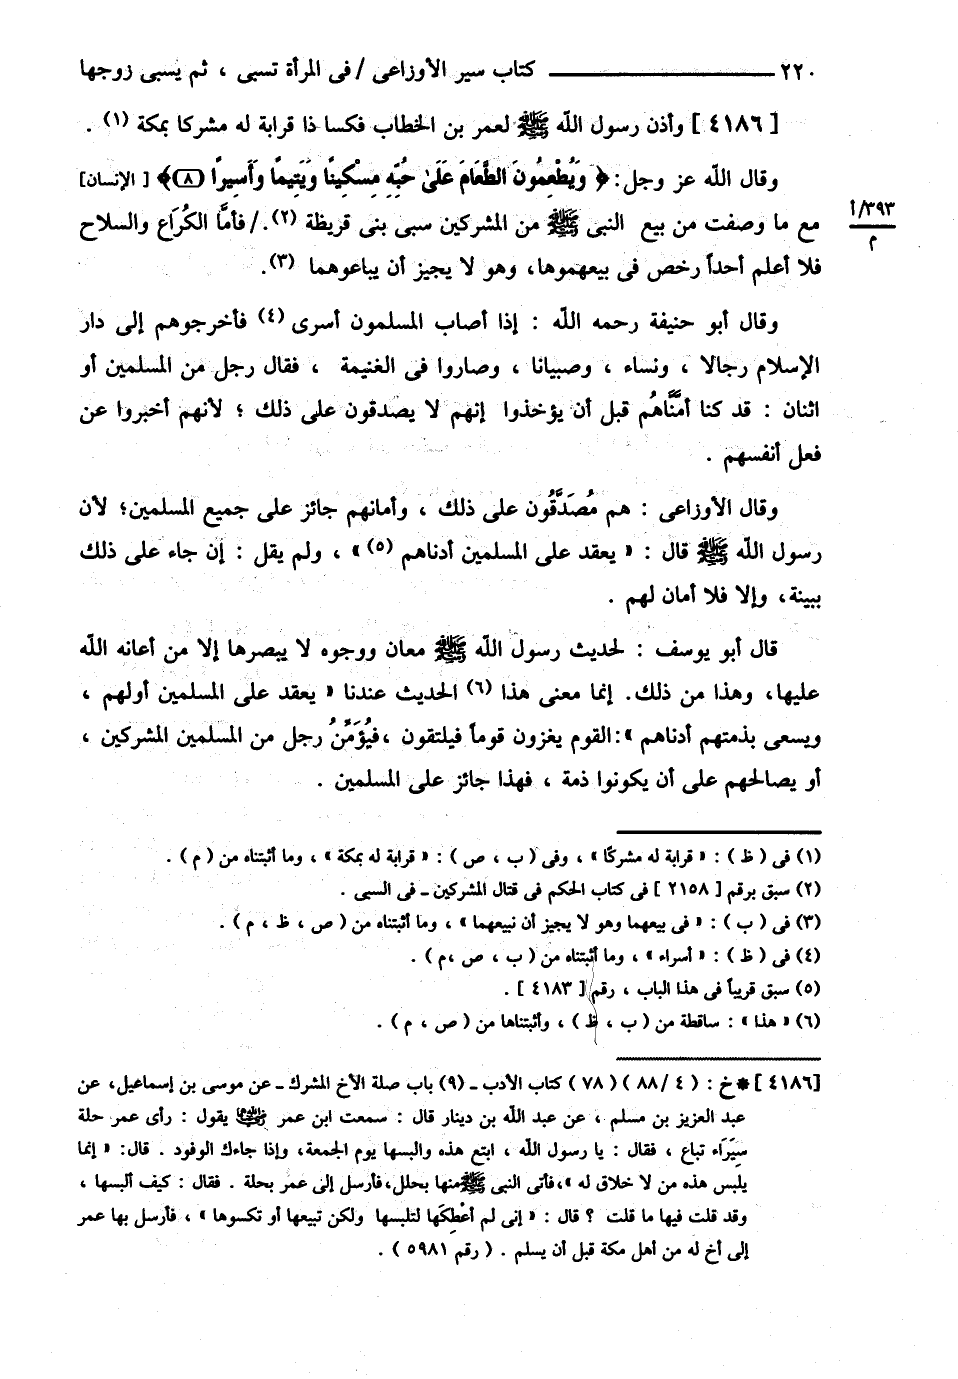 ٢٢٠ كتاب سير الأوزاعى / فى المرأة تسبى ، ثم يسبى زوجها
[ ٤١٨٦ ] وأذن رسول الله ﷺ لعمر بن الخطاب فكسا ذا قرابة له مشركا بمكة (١) .
وقال الله عز وجل : ﴿ وَيُطْعِمُونَ الطَّعَامَ عَلَىٰ حُبِّهِ مِسْكِينًا وَيَتِيمًا وَأَسِيرًا (٨) ﴾ [ الإنسان]
مع ما وصفت من بيع النبى ﷺ من المشركين سبى بنى قريظة (٢). / فأمَّا الكُرَاع والسلاح
٣٩٣/أ
م
فلا أعلم أحداً رخص فى بيعهموها، وهو لا يجيز أن يباعوهما (٣).
وقال أبو حنيفة رحمه الله : إذا أصاب المسلمون أسرى (٤) فأخرجوهم إلى دار
الإسلام رجالا ، ونساء ، وصبيانا ، وصاروا فى الغنيمة ، فقال رجل من المسلمين أو
اثنان : قد كنا أمَّنَّاهُم قبل أن يؤخذوا إنهم لا يصدقون على ذلك ؛ لأنهم أخبروا عن
فعل أنفسهم .
وقال الأوزاعى : هم مُصَدَّقُون على ذلك ، وأمانهم جائز على جميع المسلمين؛ لأن
رسول الله ﷺ قال : « يعقد على المسلمين أدناهم (٥) » ، ولم يقل : إن جاء على ذلك
ببينة، وإلا فلا أمان لهم .
قال أبو يوسف : لحديث رسول الله ﷺ معان ووجوه لا يبصرها إلا من أعانه الله
عليها، وهذا من ذلك. إنما معنى هذا (٦) الحديث عندنا « يعقد على المسلمين أولهم ،
ويسعى بذمتهم أدناهم »:القوم يغزون قوماً فيلتقون ،فيُؤَمِّنُ رجل من المسلمين المشركين ،
أو يصالحهم على أن يكونوا ذمة ، فهذا جائز على المسلمين .
(١) فى ( ظ ) : « قرابة له مشركًا » ، وفى ( ب ، ص ) : « قرابة له بمكة » ، وما أثبتناه من ( م ) .
(٢) سبق برقم [ ٢١٥٨ ] فى كتاب الحكم فى قتال المشركين ـ فى السبى .
(٣) فى ( ب ) : « فى بيعهما وهو لا يجيز أن نبيعهما » ، وما أثبتناه من ( ص ، ظ ، م ) .
(٤) فى ( ظ ) : « أسراء » ، وما أثبتناه من ( ب ، ص ،م ) .
(٥) سبق قريباً فى هذا الباب ، رقم [ ٤١٨٣ ] .
(٦) « هذا » : ساقطة من ( ب ، ظ ) ، وأثبتناها من ( ص ، م ) .
[٤١٨٦ ] * خ : ( ٤ / ٨٨ ) ( ٧٨ ) كتاب الأدب ـ (٩) باب صلة الأخ المشرك ـ عن موسى بن إسماعيل، عن
عبد العزيز بن مسلم ، عن عبد الله بن دينار قال : سمعت ابن عمر رضي الله عنهما يقول : رأى عمر حلة
سِيَرَاء تباع ، فقال : يا رسول الله ، ابتع هذه والبسها يوم الجمعة، وإذا جاءك الوفود . قال: « إنما
يلبس هذه من لا خلاق له »،فأتى النبى ﷺ منها بحلل،فأرسل إلى عمر بحلة . فقال : كيف ألبسها ،
وقد قلت فيها ما قلت ؟ قال : « إنى لم أعْطِكَها لتلبسها ولكن تبيعها أو تكسوها » ، فأرسل بها عمر
إلى أخ له من أهل مكة قبل أن يسلم . ( رقم ٥٩٨١ ) .